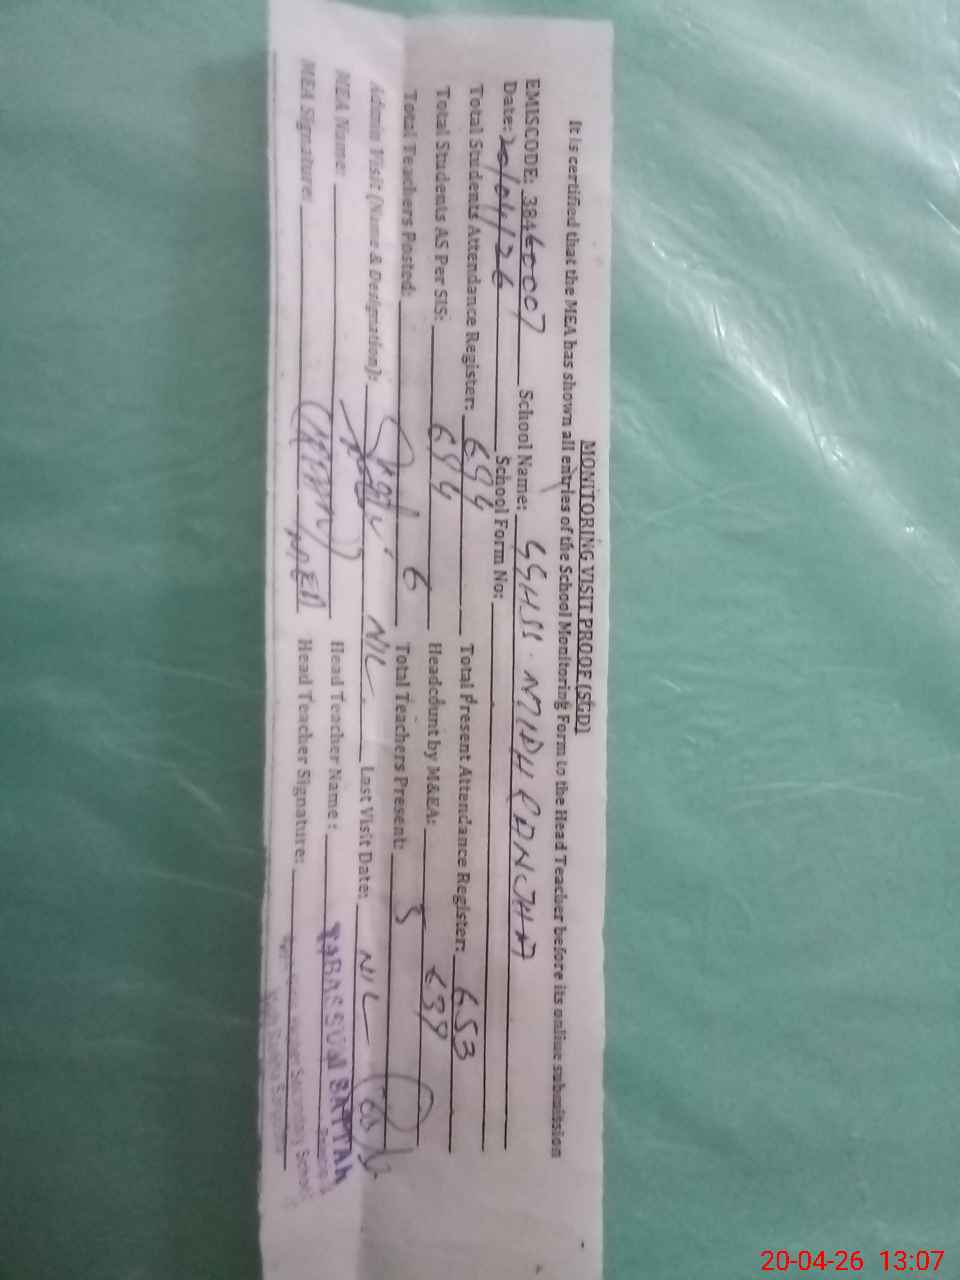 MONITORING VISIT PROOF (SGD)
It is certified that the MEA has shown all entries of the School Monitoring Form to the Head Teacher before its online submission
EMISCODE: 38460007 School Name: GGHSS. MIDH RANJHA
Date: 20/04/26 School Form No:
Total Students Attendance Register: 694 Total Present Attendance Register: 653
Total Students AS Per SIS: 694 Headcount by M&EA: 639
Total Teachers Posted: 6 Total Teachers Present: 5
Admin Visit (Name & Designation): NIL Last Visit Date: NIL
MEA Name: Head Teacher Name: TABASSUM SATTAR
MEA Signature: MEA Head Teacher Signature:
Secondary School
20-04-26 13:07